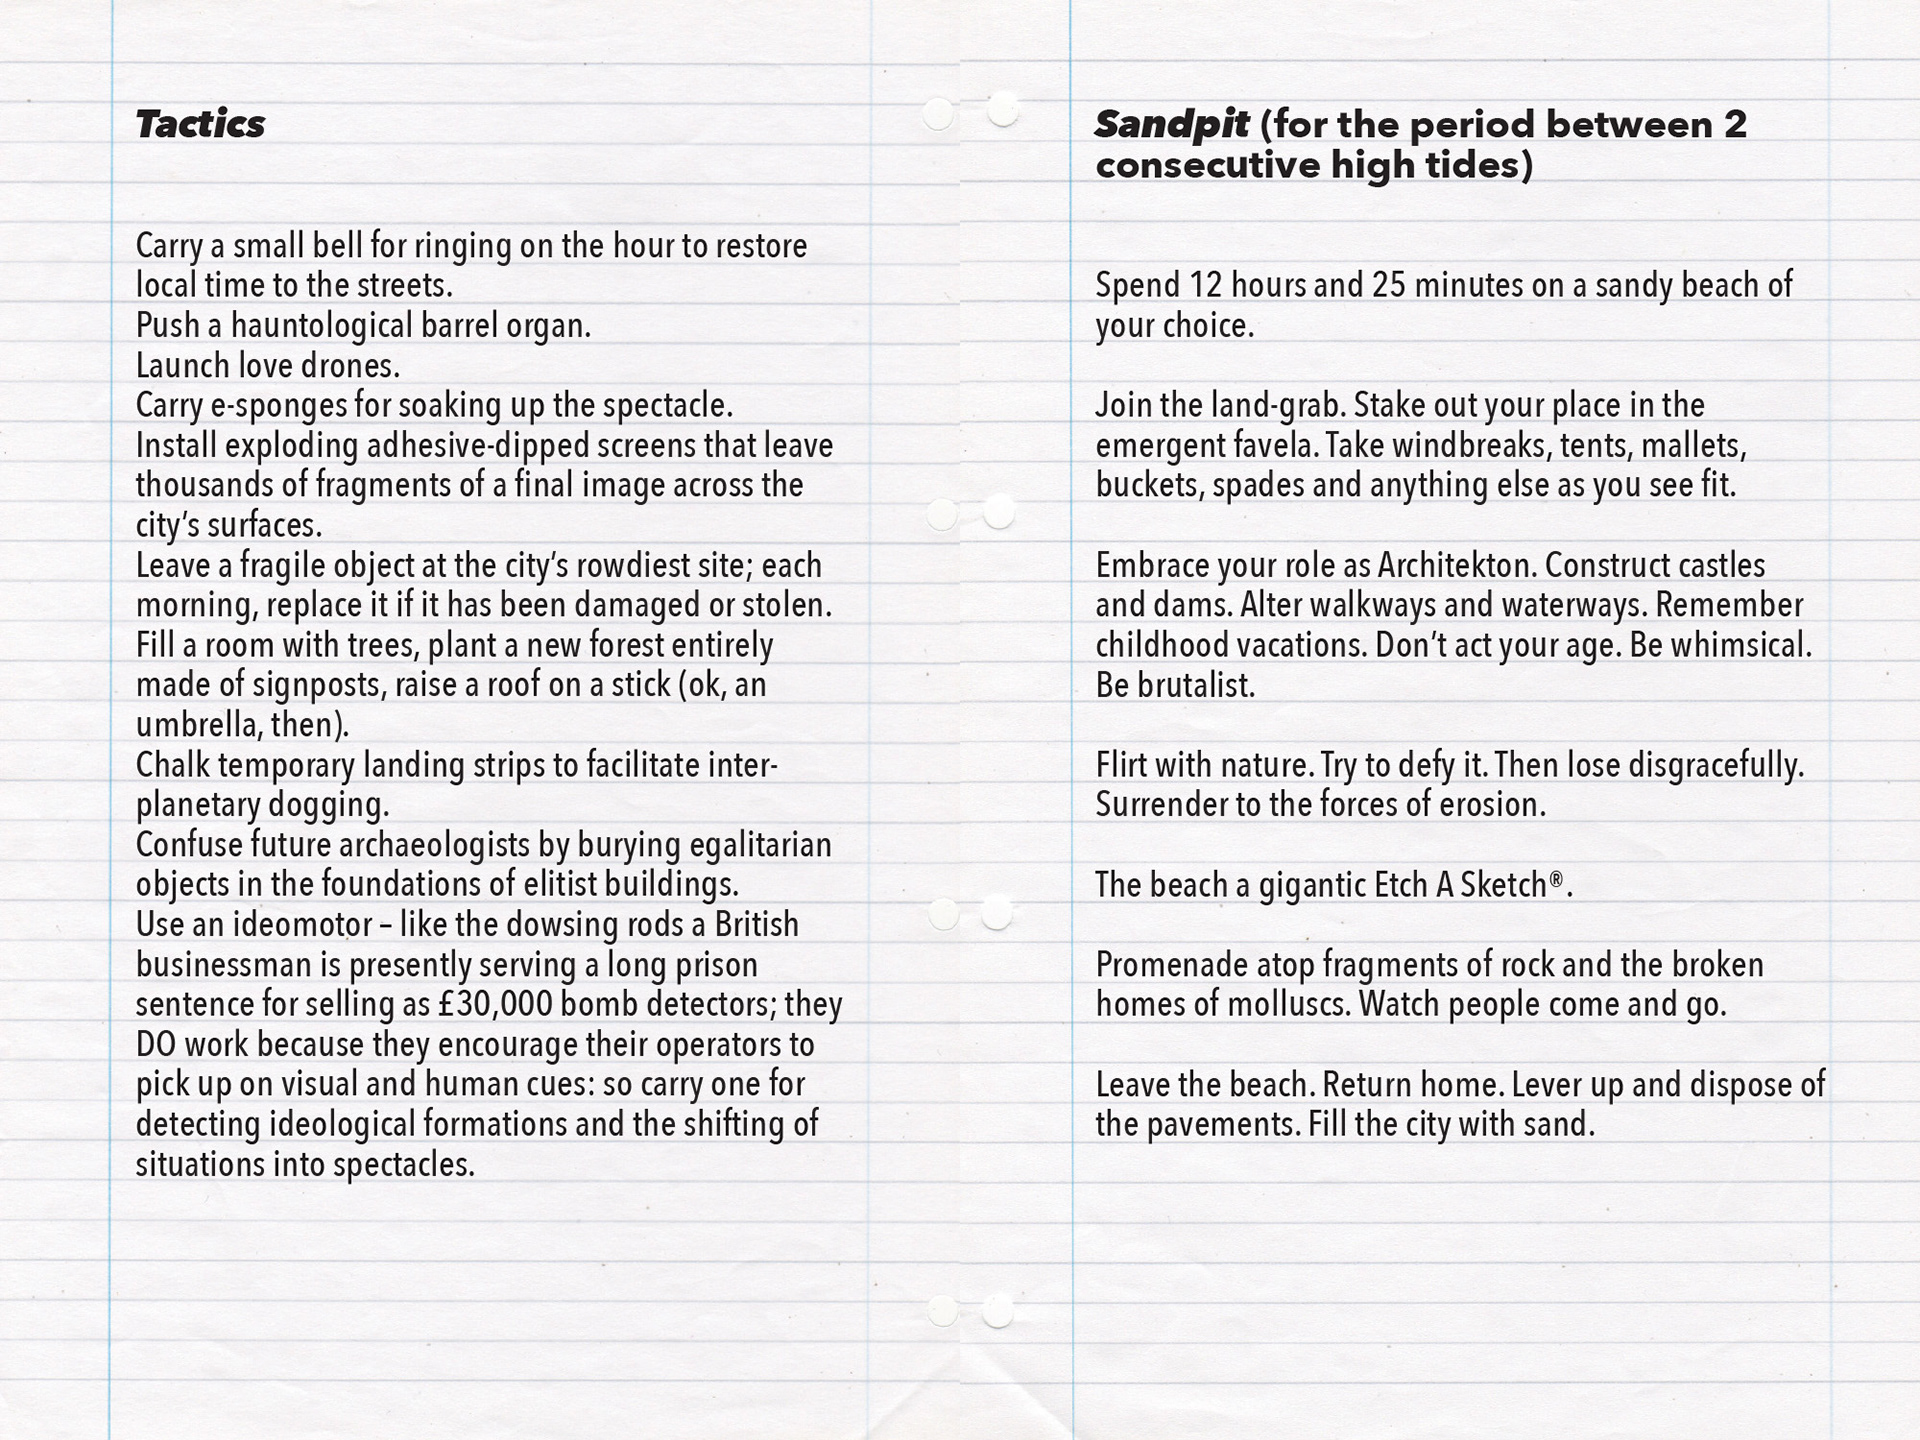 Tactics
Carry a small bell for ringing on the hour to restore
local time to the streets.
Push a hauntological barrel organ.
Launch love drones.
Carry e-sponges for soaking up the spectacle.
Install exploding adhesive-dipped screens that leave
thousands of fragments of a final image across the
city’s surfaces.
Leave a fragile object at the city’s rowdiest site; each
morning, replace it if it has been damaged or stolen.
Fill a room with trees, plant a new forest entirely
made of signposts, raise a roof on a stick (ok, an
umbrella, then).
Chalk temporary landing strips to facilitate inter-
planetary dogging.
Confuse future archaeologists by burying egalitarian
objects in the foundations of elitist buildings.
Use an ideomotor – like the dowsing rods a British
businessman is presently serving a long prison
sentence for selling as £30,000 bomb detectors; they
DO work because they encourage their operators to
pick up on visual and human cues: so carry one for
detecting ideological formations and the shifting of
situations into spectacles.
Sandpit (for the period between 2
consecutive high tides)
Spend 12 hours and 25 minutes on a sandy beach of
your choice.
Join the land-grab. Stake out your place in the
emergent favela. Take windbreaks, tents, mallets,
buckets, spades and anything else as you see fit.
Embrace your role as Architekton. Construct castles
and dams. Alter walkways and waterways. Remember
childhood vacations. Don’t act your age. Be whimsical.
Be brutalist.
Flirt with nature. Try to defy it. Then lose disgracefully.
Surrender to the forces of erosion.
The beach a gigantic Etch A Sketch®.
Promenade atop fragments of rock and the broken
homes of molluscs. Watch people come and go.
Leave the beach. Return home. Lever up and dispose of
the pavements. Fill the city with sand.